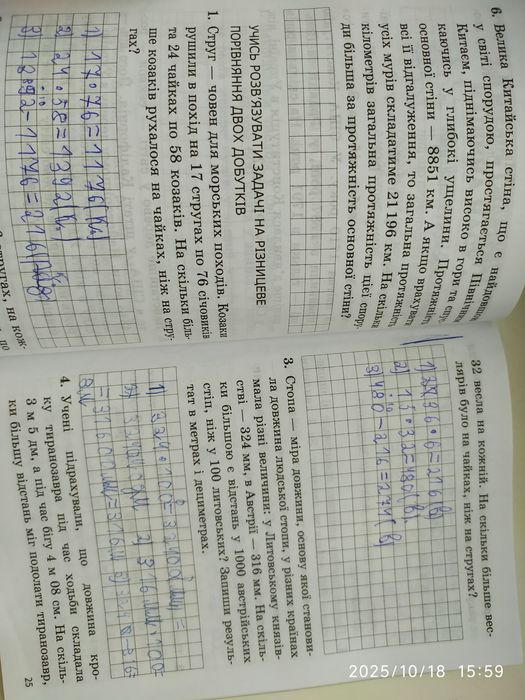 6. Велика Китайська стіна, що є найдовшою
у світі спорудою, простягається Північним
Китаєм, піднімаючись високо в гори та спус-
каючись у глибокі ущелини. Протяжність
основної стіни — 8851 км. А якщо врахувати
всі її відгалуження, то загальна протяжність
усіх мурів складатиме 21 196 км. На скільки
кілометрів загальна протяжність цієї спору-
ди більша за протяжність основної стіни?
УЧИСЬ РОЗВ'ЯЗУВАТИ ЗАДАЧІ НА РІЗНИЦЕВЕ
ПОРІВНЯННЯ ДВОХ ДОБУТКІВ
1. Струг — човен для морських походів. Козаки
рушили в похід на 17 стругах по 76 січовиків
та 24 чайках по 58 козаків. На скільки біль-
ше козаків рухалося на чайках, ніж на стру-
гах?
1) 17·76=1176(к.)
2) 24·58=1392(к.)
3) 1392-1176=216(
стругах, на кож-
32 весла на кожній. На скільки більше вес-
лярів було на чайках, ніж на стругах?
6=216(в)
2) 15·32=480(в.)
3) 480-216=174(в)
3. Стопа — міра довжини, основу якої станови-
ла довжина людської стопи, у різних країнах
мала різні величини: у Литовському князів-
стві — 324 мм, в Австрії — 316 мм. На скіль-
ки більшою є відстань у 1000 австрійських
стіп, ніж у 100 литовських? Запиши резуль-
тат в метрах і дециметрах.
1) 324·100=32400(мм)=
2) 316мм·100
4. Учені підрахували, що довжина кро-
ку тиранозавра під час ходьби складала
3 м 5 дм, а під час бігу 4 м 08 см. На скіль-
ки більшу відстань міг подолати тиранозавр,
25
2025/10/18 15:59